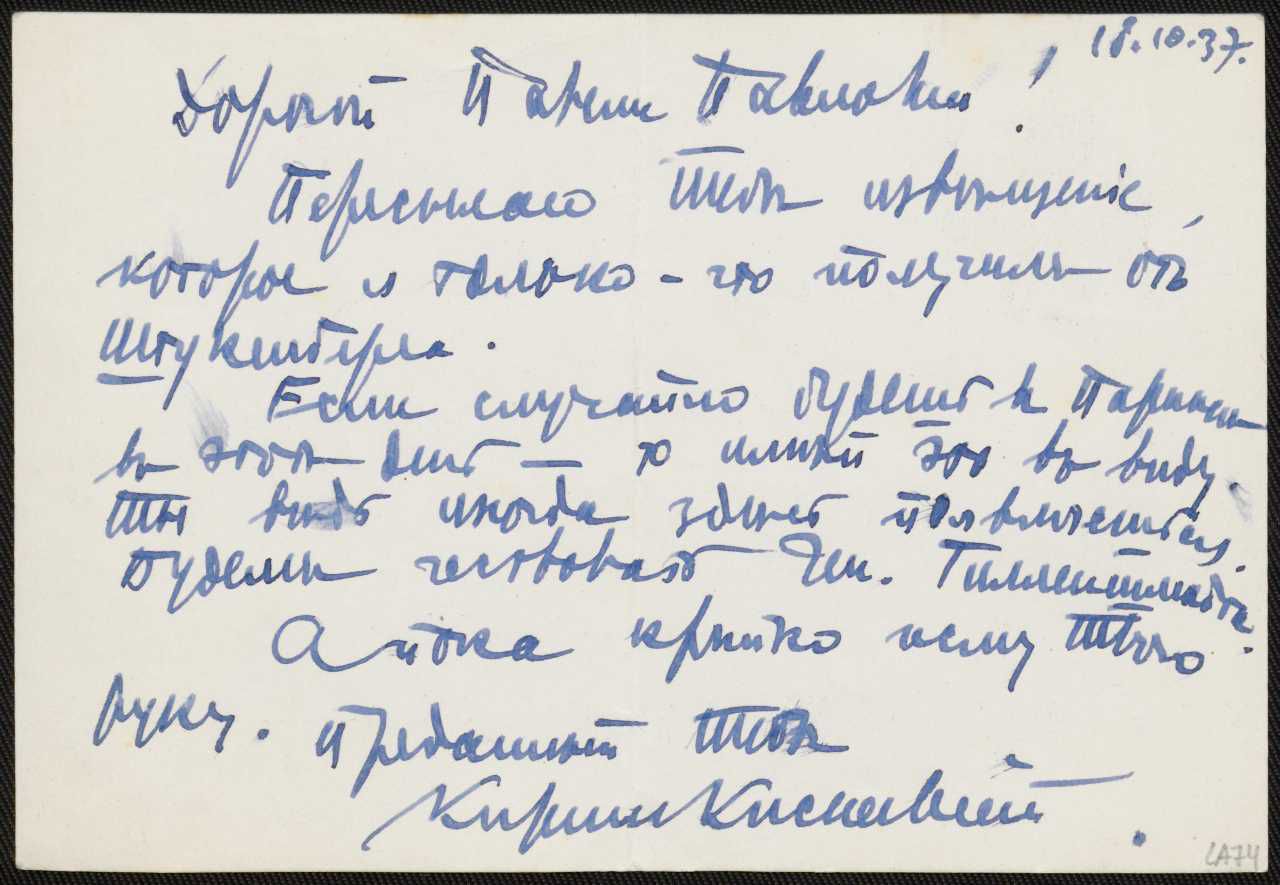 18.10.37.
Дорогой Павел Павлович!
Пересылаю Тебѣ извѣщеніе,
которое я только-что получилъ отъ
Штукенберга.
Если случайно будешь въ Парижѣ
въ этотъ день — то имѣй это въ виду.
Ты вѣдь иногда здѣсь появляешься.
Будемъ чествовать Ген.
А пока крѣпко жму Твою
руку. Преданный Тебѣ
Кирилл
LA74